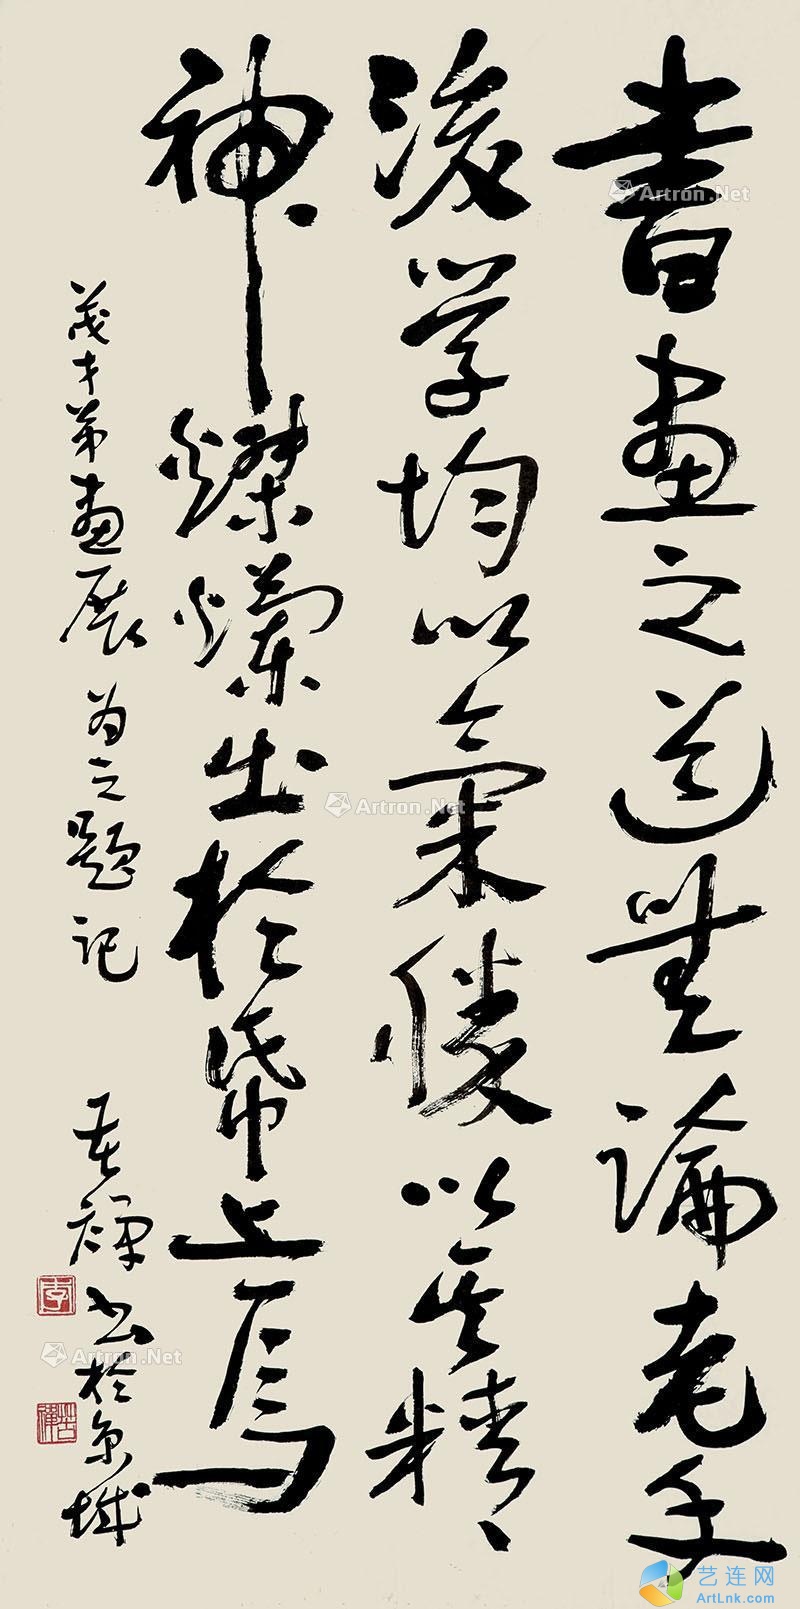 書畫之道無論老手
後学均以氣勝以其精
神燦爛出於帋上焉
茂才弟畫展為之題記
苦禪书於京城
李
苦禪
Artron.Net
Artron.Net
Artron.Net
艺连网
ArtLnk.com